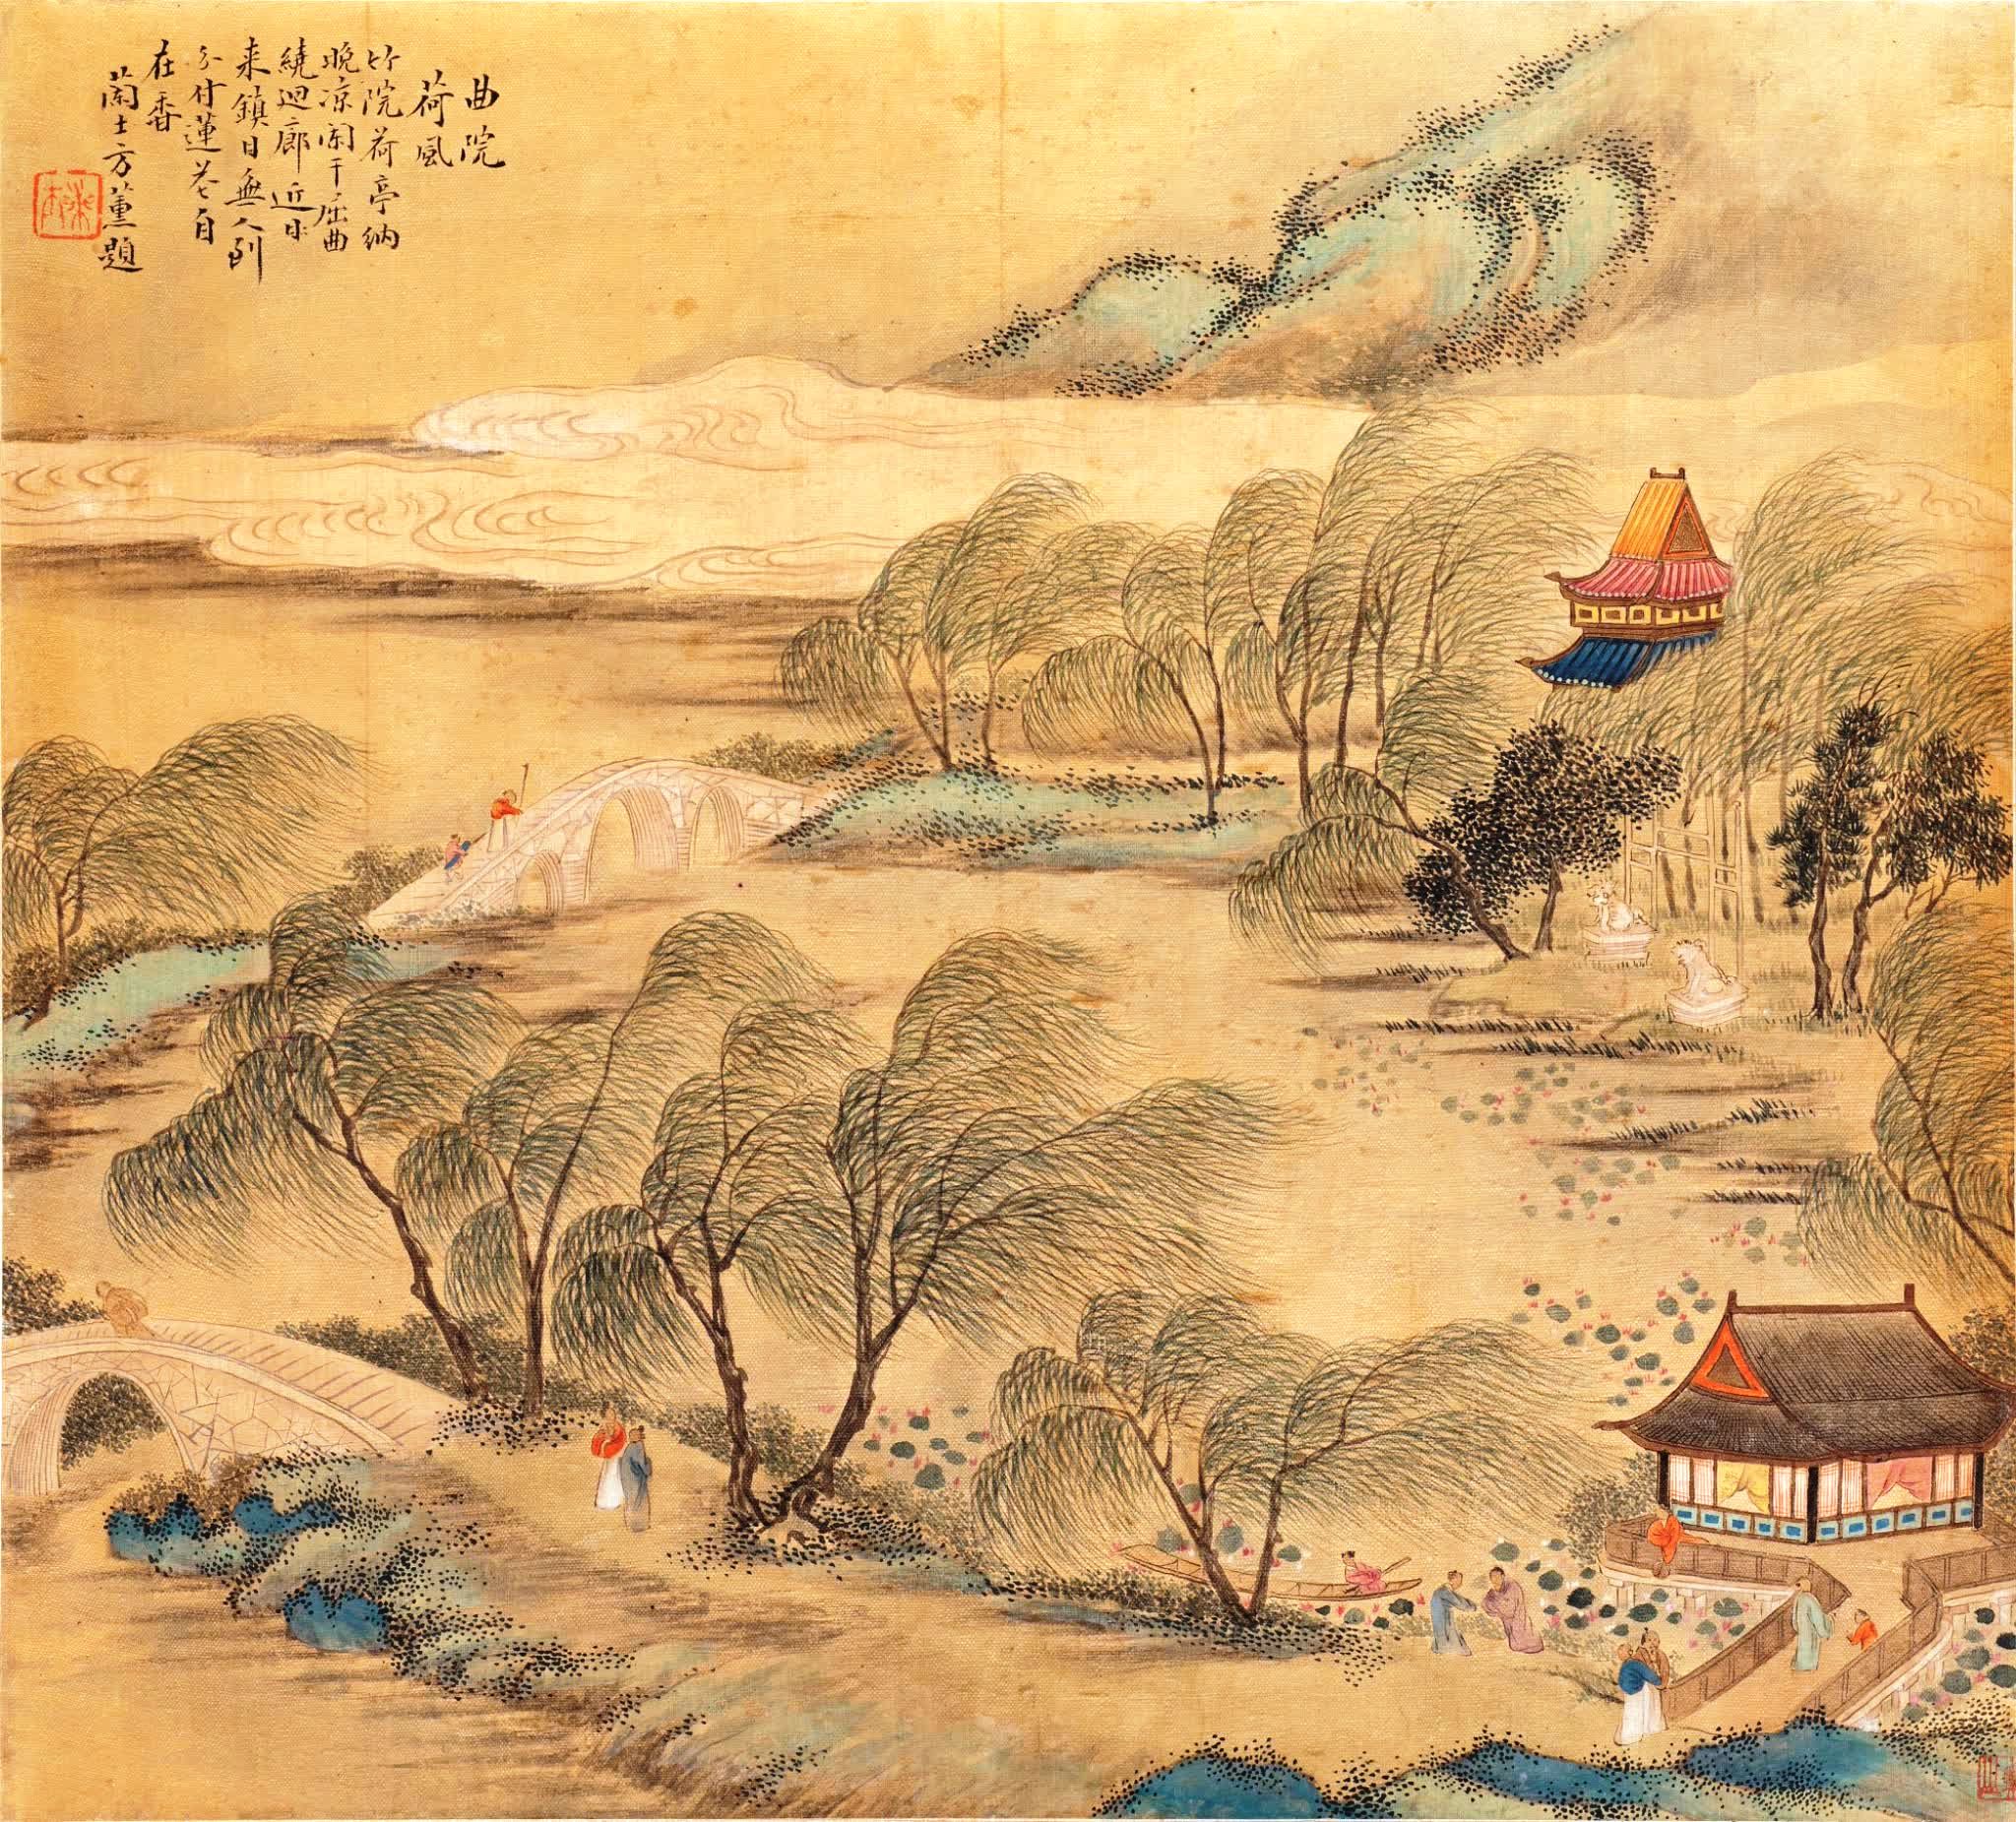 曲院
荷風
竹院荷亭納
晚凉闌干屈曲
繞迴廊近日
来鎮日無人到
分付蓮花自
在香
蘭士方薰題